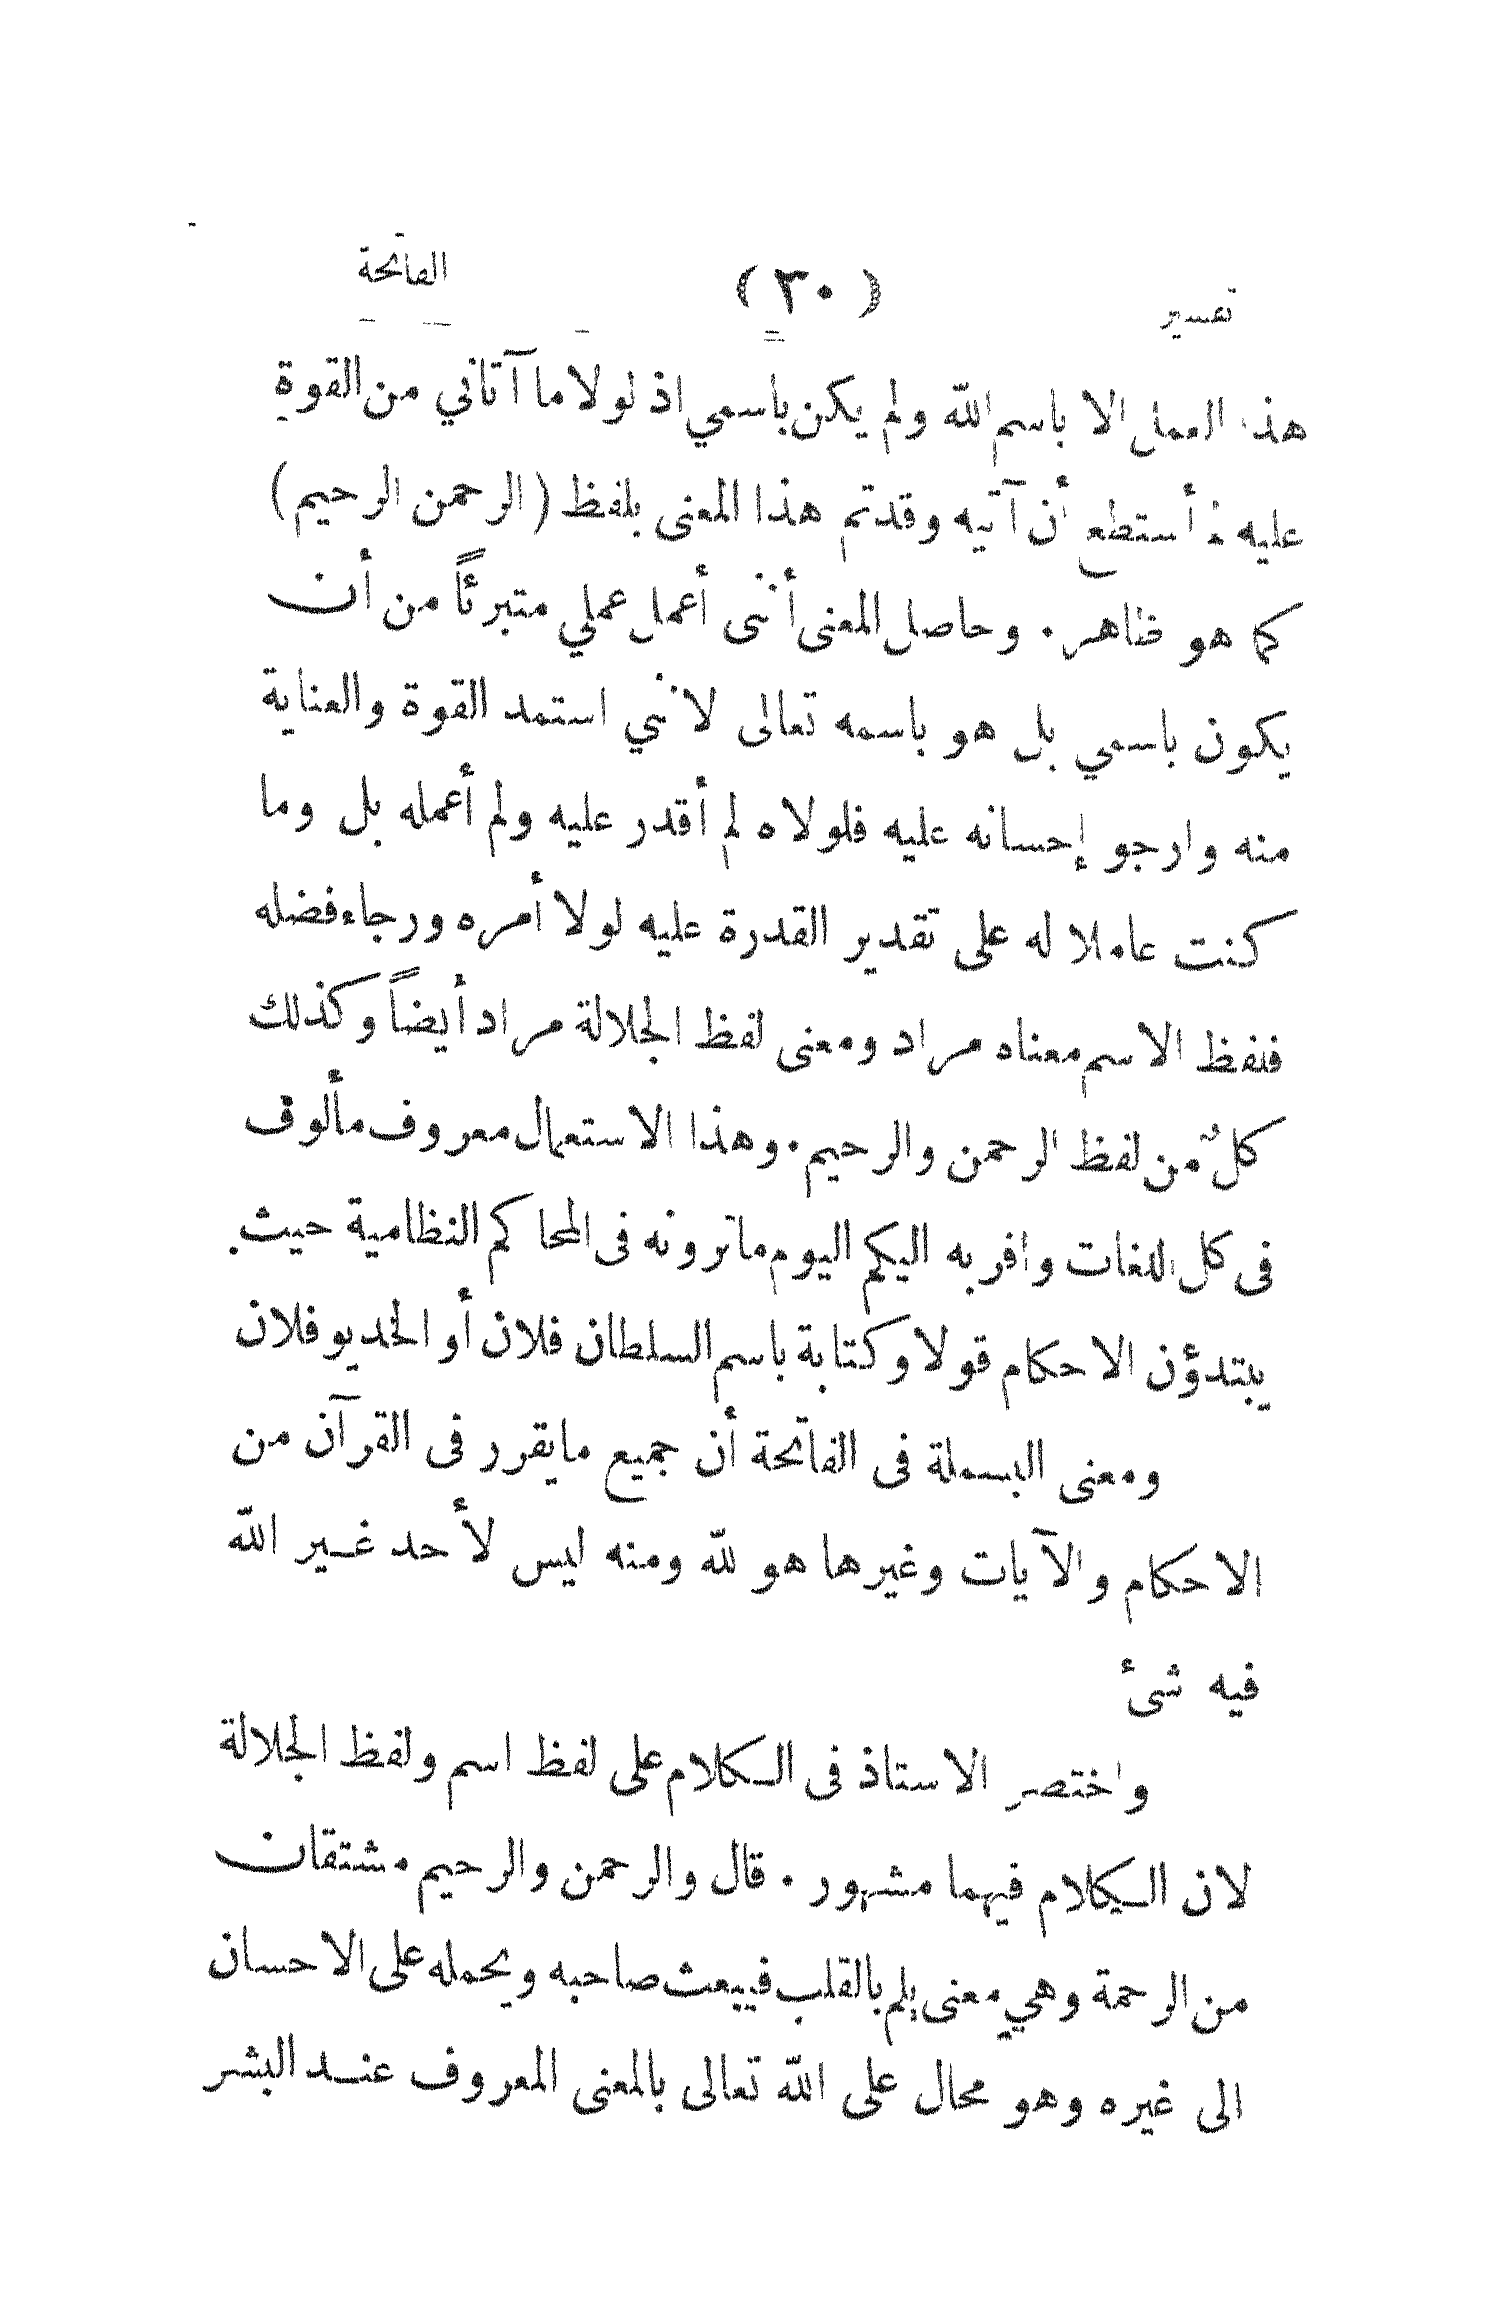 تفسير (٣٠) الفاتحة
هذا العمل الا باسم الله ولم يكن باسمي اذ لولا ما آتاني من القوة
عليه لم أستطع أن آتيه وقد تم هذا المعنى بلفظ (الرحمن الرحيم)
كما هو ظاهر. وحاصل المعنى أننى أعمل عملي متبرئاً من أن
يكون باسمي بل هو باسمه تعالى لانني استمد القوة والعناية
منه وارجو إحسانه عليه فلولاه لم أقدر عليه ولم أعمله بل وما
كنت عاملا له على تقدير القدرة عليه لولا أمره ورجاء فضله
فلفظ الاسم معناه مراد ومعنى لفظ الجلالة مراد أيضاً وكذلك
كلٌ من لفظ الرحمن والرحيم. وهذا الاستعمال معروف مألوف
فى كل اللغات واقربه اليكم اليوم ماترونه فى المحاكم النظامية حيث
يبتدؤن الاحكام قولا وكتابة باسم السلطان فلان أو الخديو فلان
ومعنى البسملة فى الفاتحة أن جميع مايقرر فى القرآن من
الاحكام والآيات وغيرها هو لله ومنه ليس لأحد غير الله
فيه شئ
واختصر الاستاذ فى الكلام على لفظ اسم ولفظ الجلالة
لان الكلام فيهما مشهور. قال والرحمن والرحيم مشتقان
من الرحمة وهي معنى يلم بالقلب فيبعث صاحبه ويحمله على الاحسان
الى غيره وهو محال على الله تعالى بالمعنى المعروف عند البشر